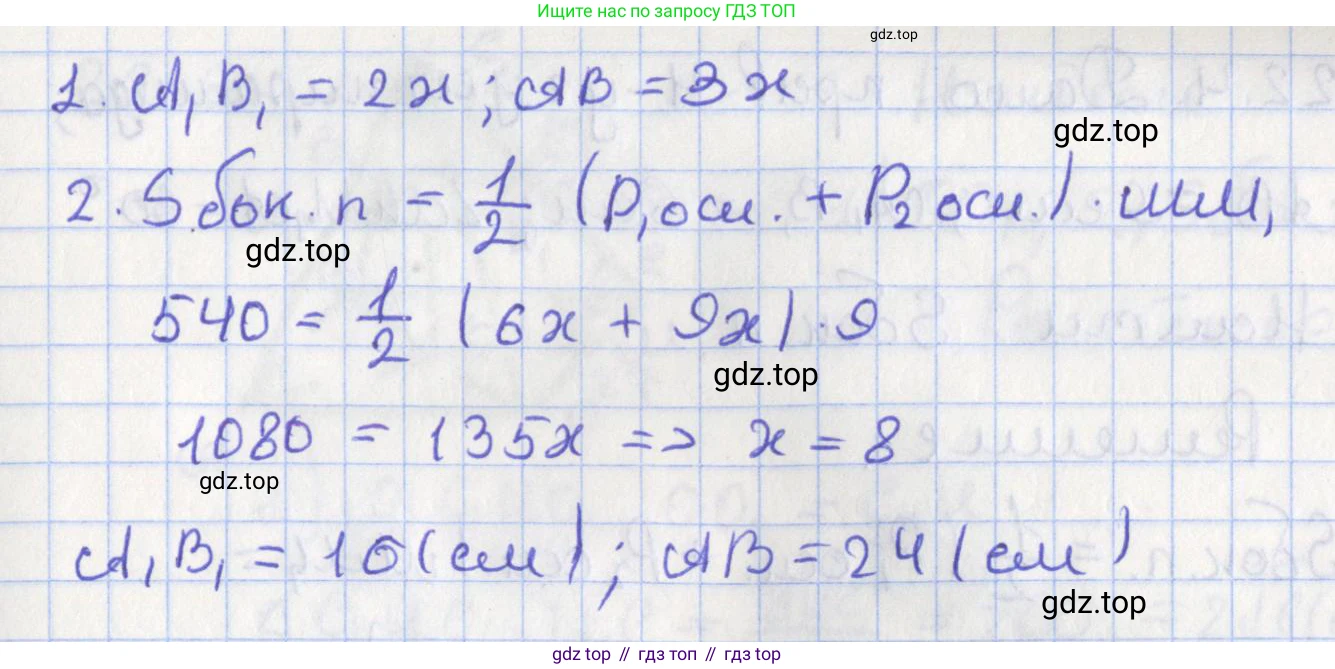 Ищите нас по запросу ГДЗ ТОП
gdz.top
1. A₁B₁ = 2x; AB = 3x
gdz.top
2. Sбок. п = 1/2 (P₁осн. + P₂осн.) · MM₁
gdz.top
540 = 1/2 (6x + 9x) · 9
gdz.top
1080 = 135x => x = 8
gdz.top
A₁B₁ = 16(см); AB = 24 (см)
gdz.top
gdz top // гдз топ // гдз top